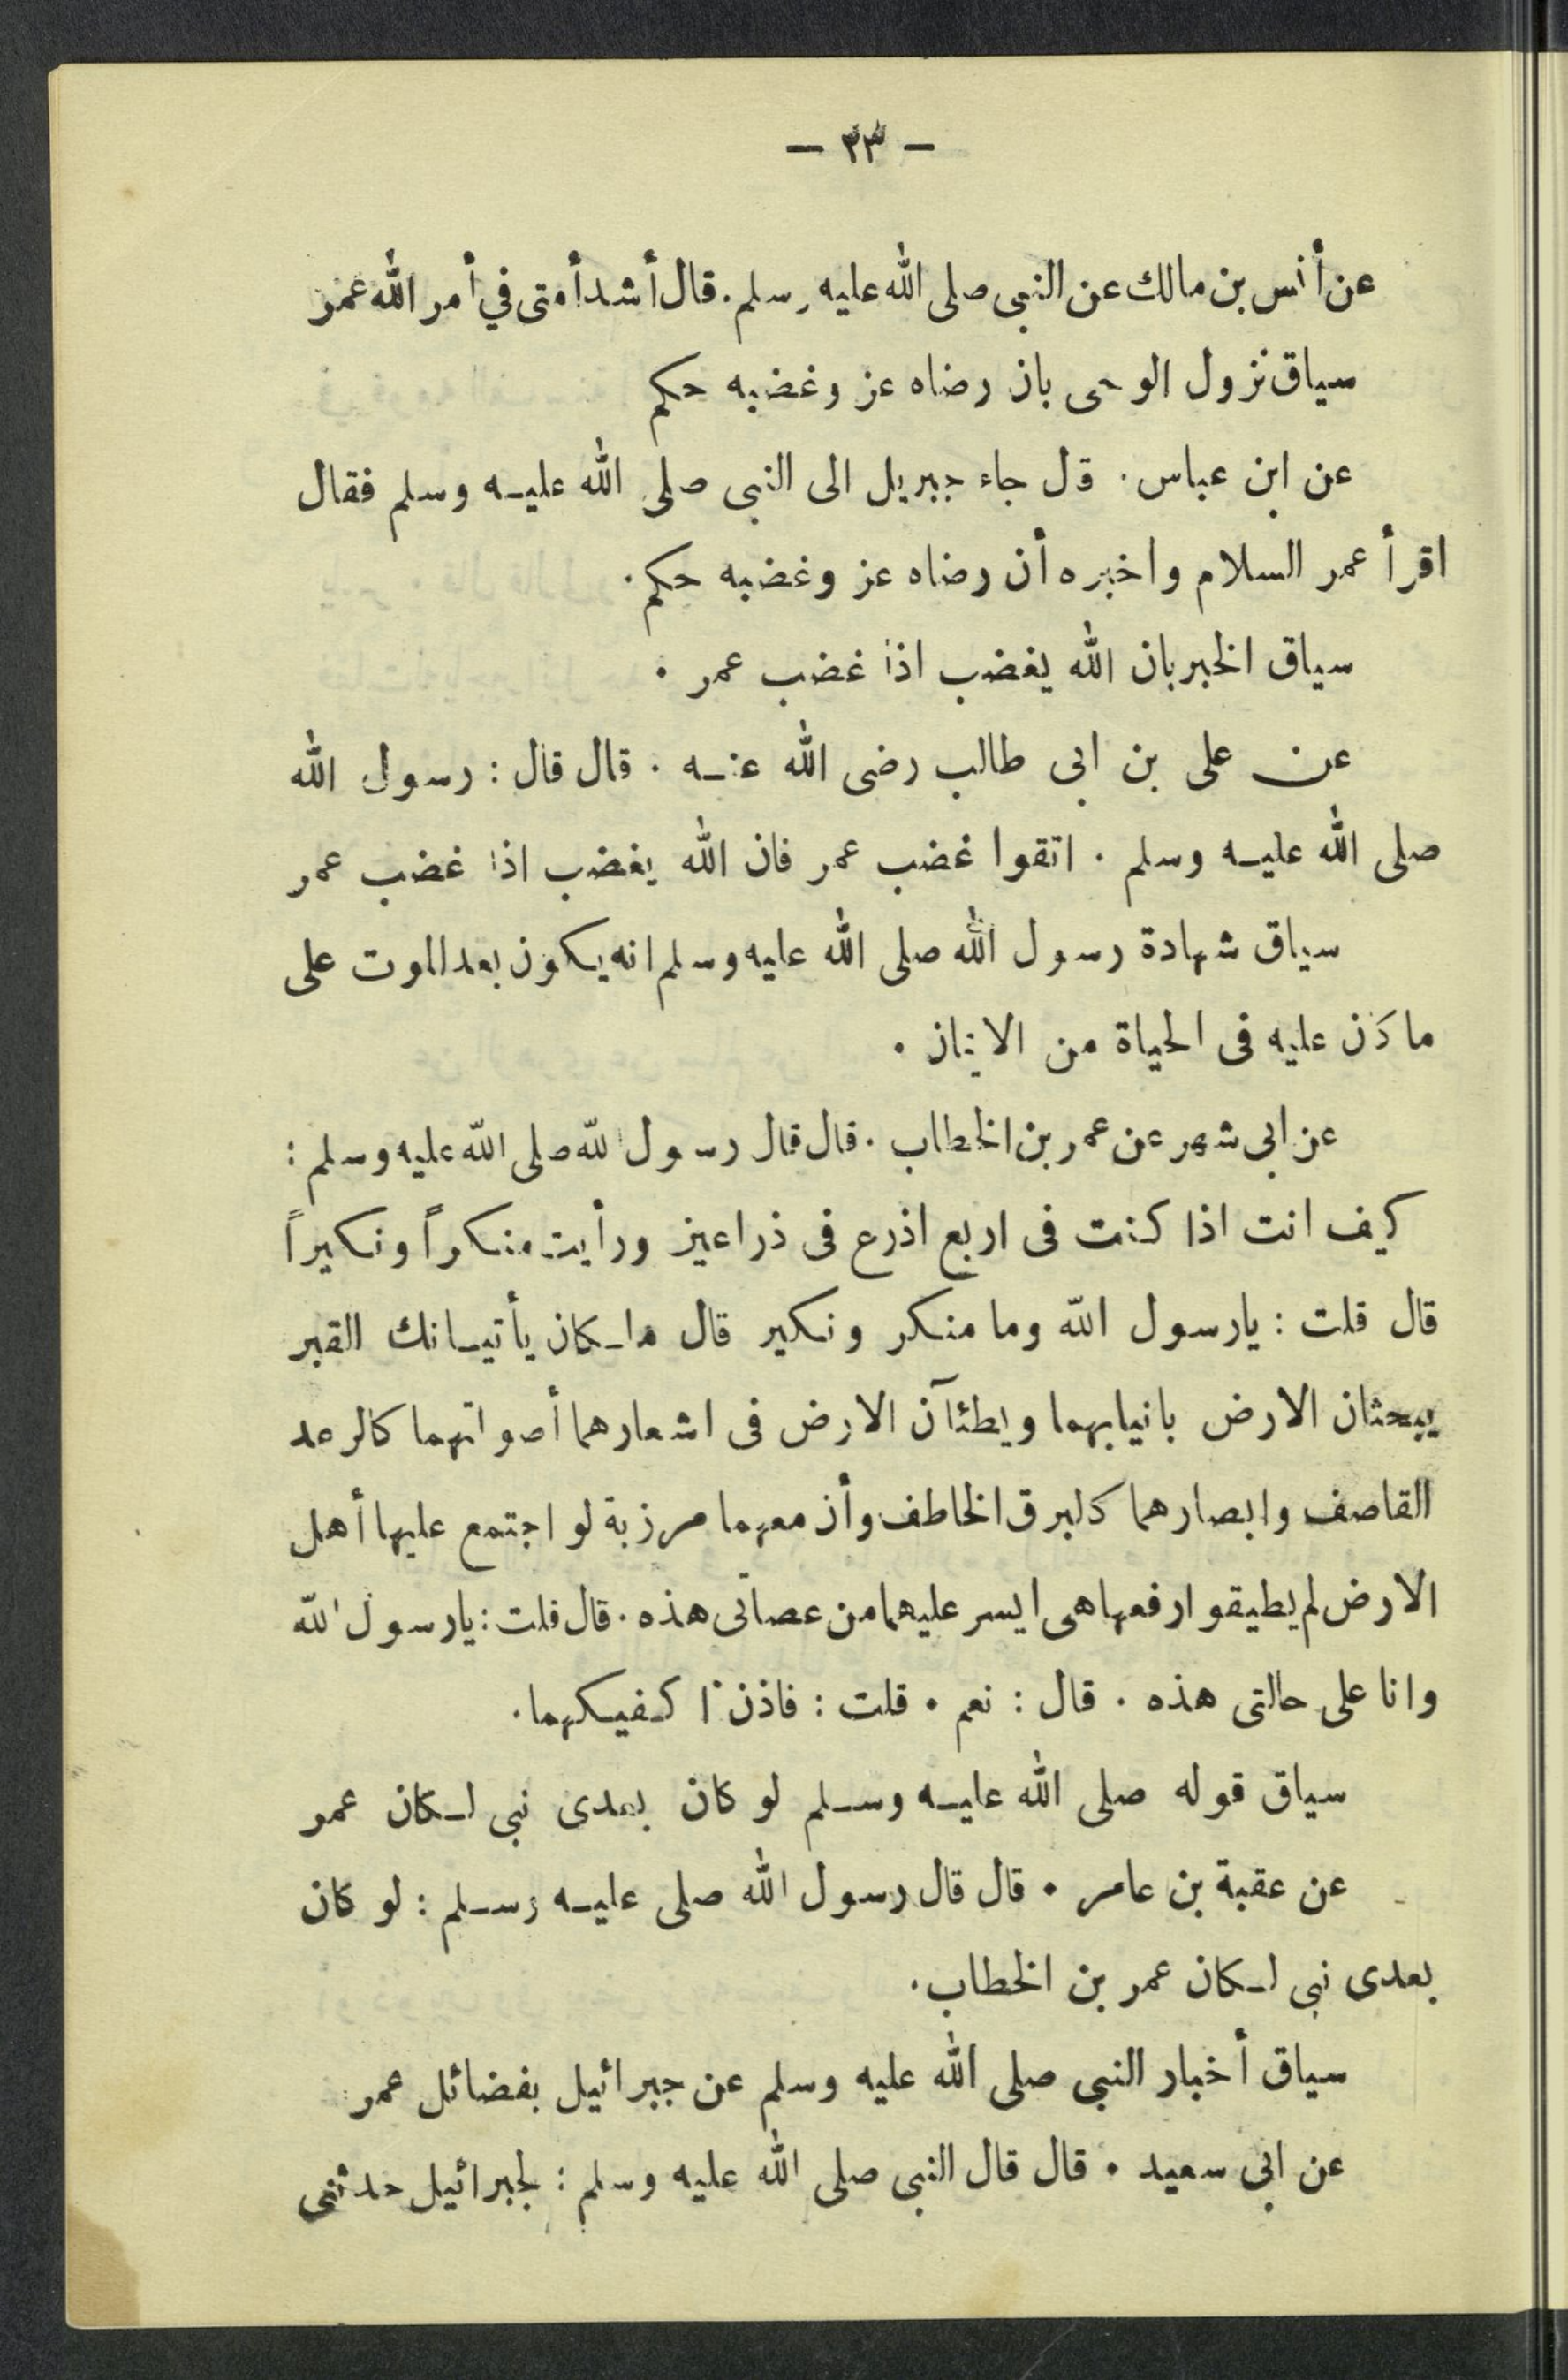 — ٢٣ —
عن أنس بن مالك عن النبى صلى الله عليه وسلم. قال أشد أمتى في أمر الله عمر
سياق نزول الوحى بان رضاه عز وغضبه حكم
عن ابن عباس. قال جاء جبريل الى النبى صلى الله عليـه وسلم فقال
اقرأ عمر السلام واخبره أن رضاه عز وغضبه حكم.
سياق الخبر بان الله يغضب اذا غضب عمر.
عن على بن ابى طالب رضى الله عنـه. قال قال: رسول الله
صلى الله عليـه وسلم. اتقوا غضب عمر فان الله يغضب اذا غضب عمر
سياق شهادة رسول الله صلى الله عليه وسلم انه يكون بعد الموت على
ما كان عليه فى الحياة من الايمان.
عن ابى شهر عن عمر بن الخطاب. قال قال رسول الله صلى الله عليه وسلم:
كيف انت اذا كنت فى اربع اذرع فى ذراعين ورأيت منكراً ونكيراً
قال قلت: يارسول الله وما منكر ونكير قال ملـكان يأتيـانك القبر
يبحثان الارض بانيابهما ويطئآن الارض فى اشعارهما أصواتهما كالرعد
القاصف وابصارهما كالبرق الخاطف وأن معهما مرزبة لو اجتمع عليها أهل
الارض لم يطيقوا رفعها هى ايسر عليهما من عصاتى هذه. قال قلت: يارسول الله
وانا على حالتى هذه. قال: نعم. قلت: فاذن ا كـفيـكهما.
سياق قوله صلى الله عليـه وسـلم لو كان بعدى نبى لـكان عمر
عن عقبة بن عامر. قال قال رسول الله صلى عليـه وسـلم: لو كان
بعدى نبى لـكان عمر بن الخطاب.
سياق أخبار النبى صلى الله عليه وسلم عن جبرائيل بفضائل عمر
عن ابى سعيد. قال قال النبى صلى الله عليه وسلم: لجبرائيل حدثنى